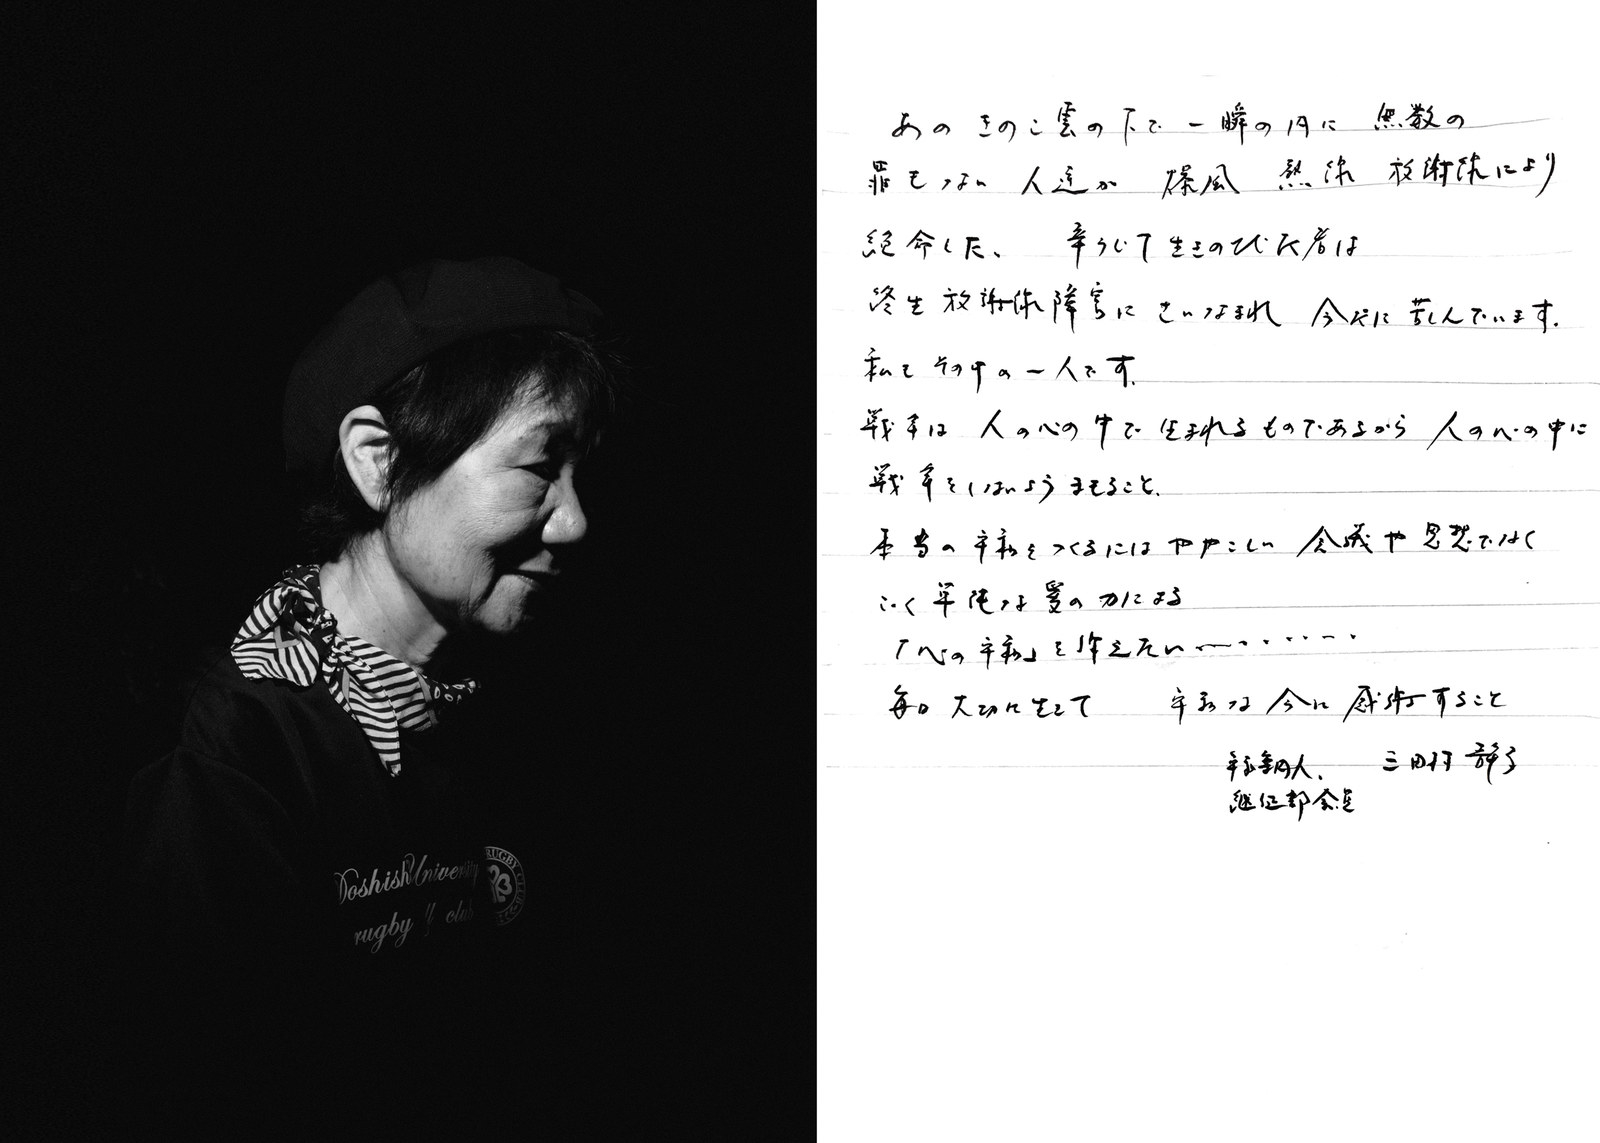 Doshisha University
rugby club
RUGBY CLUB
あの きのこ雲の下で 一瞬の内に 無数の
罪もない 人達が 爆風 熱線 放射線により
絶命した、 辛うじて生きのびた者は
終生 放射線障害に さいなまれ 今だに 苦しんでいます.
私も その中の一人です.
戦争は 人の心の中で 生まれるものであるから 人の心の中に
戦争をしないよう させること.
本当の 平和をつくるには ややこしい 会議や思想でなく
ごく 単純な愛の力による
「心の平和」を伝えたい〜‥‥‥
毎日 大切に生きて 平和な今に 感謝すること
平和案内人. 三田村 静子
継証部会員